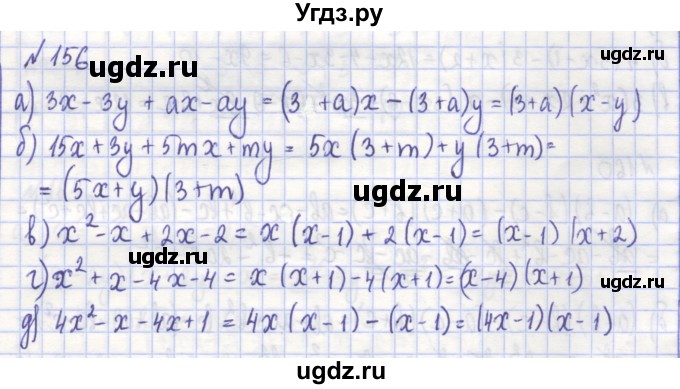 Угдз.ру
№ 156
ugdz.ru
ugdz.ru
а) 3x - 3y + ax - ay = (3 + a)x - (3 + a)y = (3+a)(x-y)
б) 15x + 3y + 5mx + my = 5x(3+m) + y(3+m) =
= (5x+y)(3+m)
ugdz.ru
в) x² - x + 2x - 2 = x(x-1) + 2(x-1) = (x-1)(x+2)
ugdz.ru
г) x² + x - 4x - 4 = x(x+1) - 4(x+1) = (x-4)(x+1)
ugdz.ru
д) 4x² - x - 4x + 1 = 4x(x-1) - (x-1) = (4x-1)(x-1)
ugdz.ru
Угдз.ру